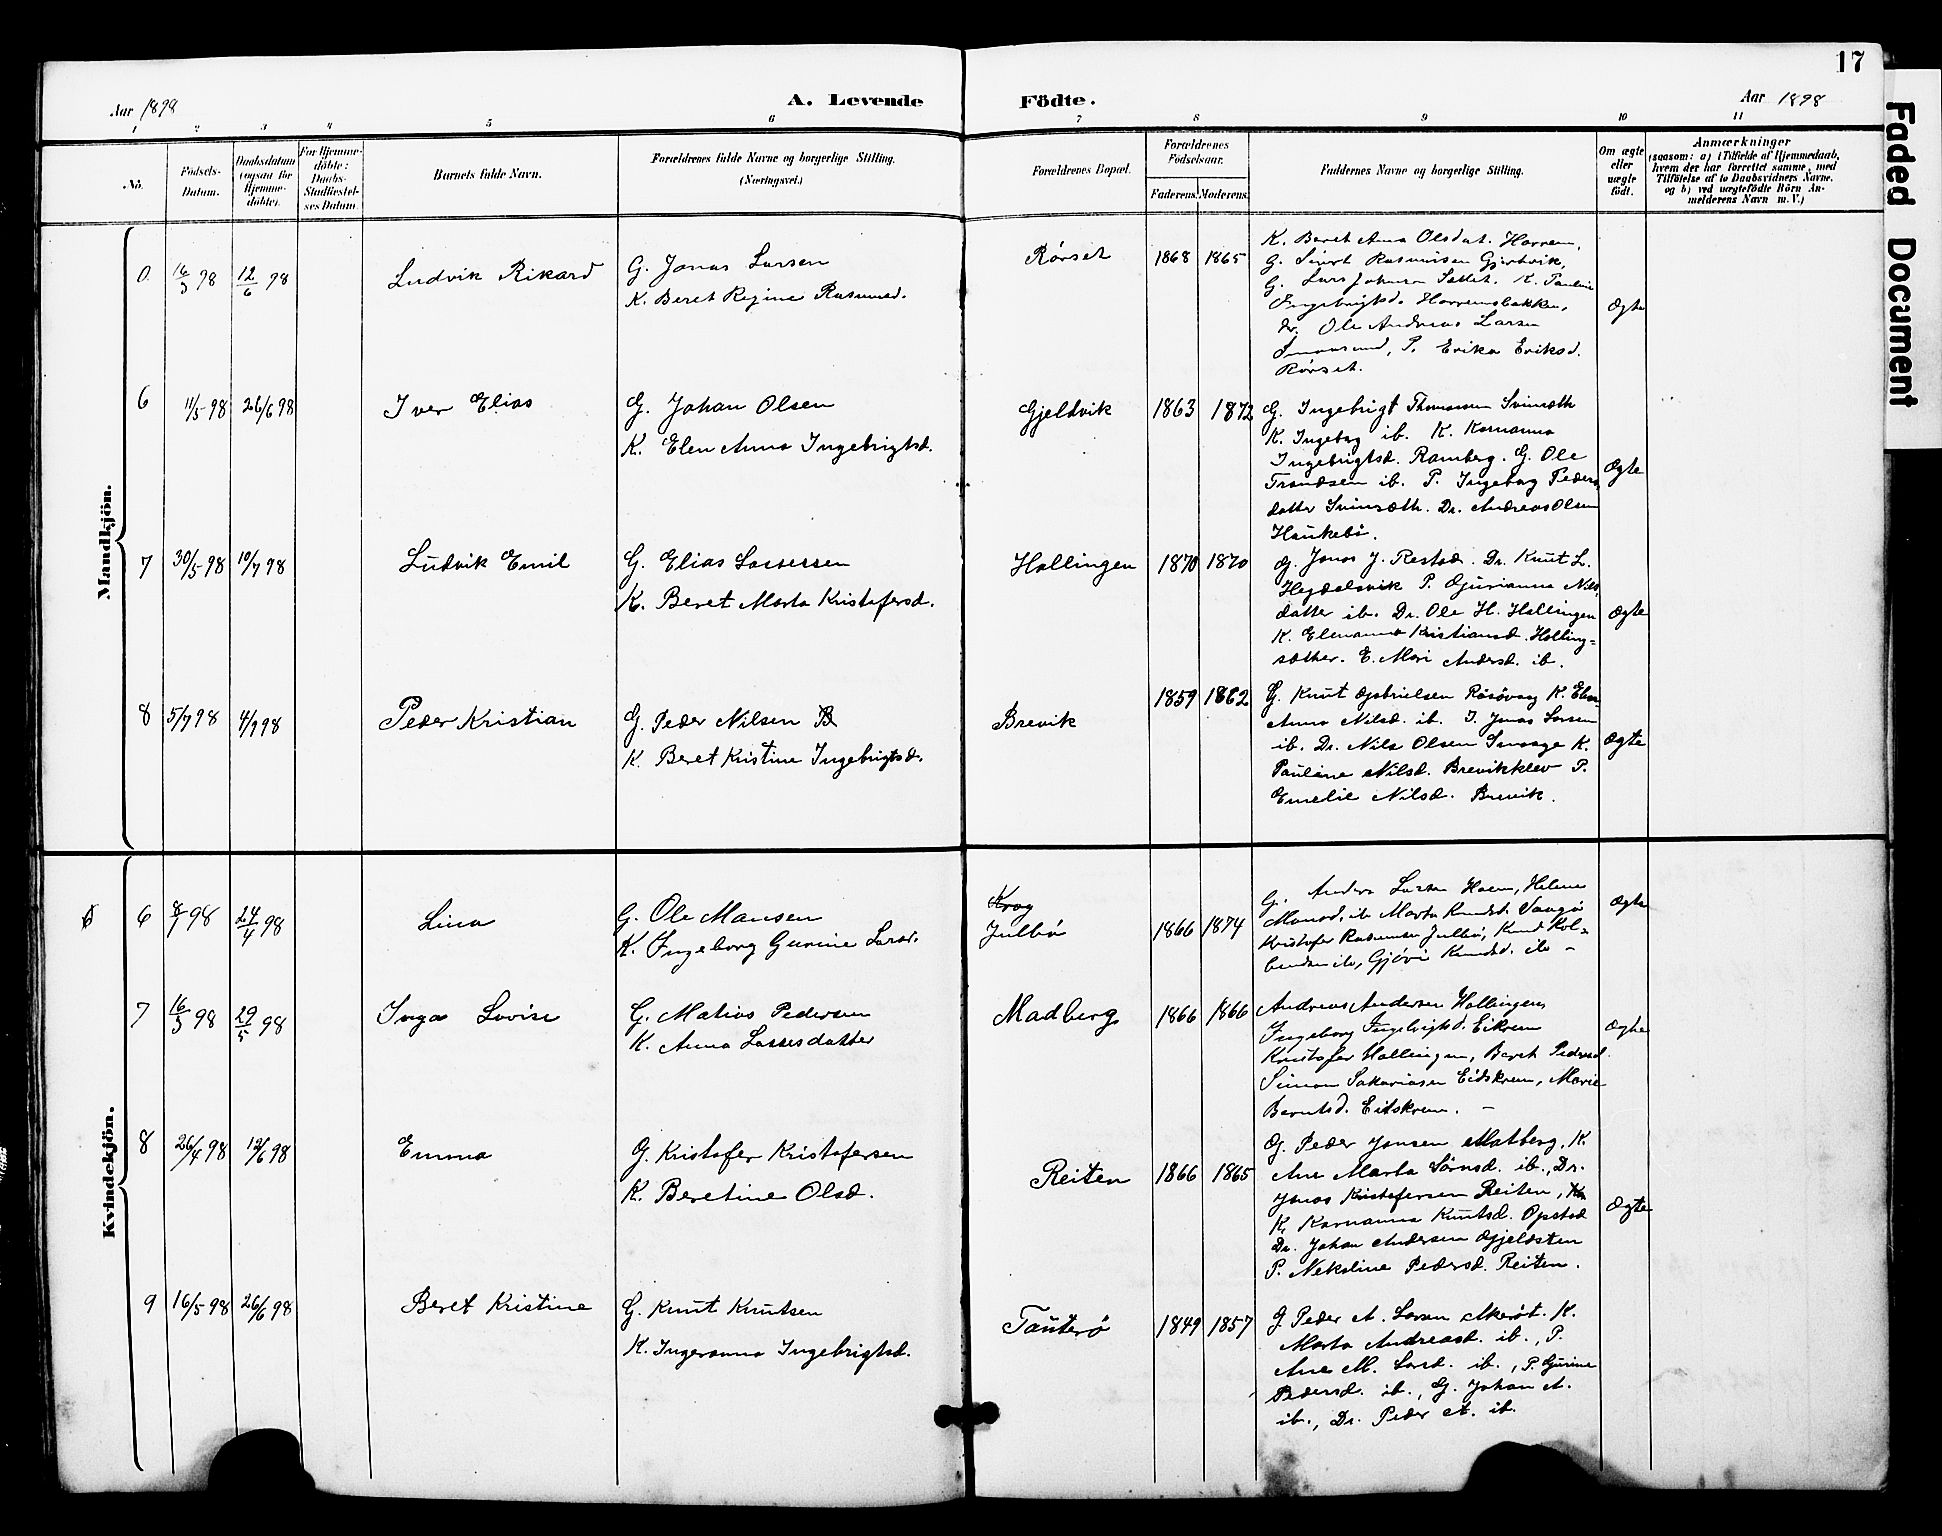 17
Faded Document
Aar 1898
A. Levende Födte.
Aar 1898
1 2 3 4 5 6 7 8 9 10 11
No.
Födsels-
Datum.
Daabsdatum
(ogsaa for
Hjemme-
döbte).
For Hjemme-
döbte:
Daabs-
Stadfæstel-
ses Datum
Barnets fulde Navn.
Forældrenes fulde Navne og borgerlige Stilling.
(Næringsvei.)
Forældrenes Bopæl.
Forældrenes
Födselsaar.
Faderens. Moderens.
Faddernes Navne og borgerlige Stilling.
Om ægte
eller
uægte
födt.
Anmærkninger
(saasom: a) i Tilfælde af Hjemmedaab,
hvem der har forrettet samme, med
Tilföielse af to Daabsvidners Navne,
og b) ved uægtefödte Börn An-
melderens Navn m.V.)
Mandkjön.
16/3 98 12/6 98 Ludvik Rikard
G. Jonas Larsen
K. Beret Regine Rasmusd.
Rørset 1868 1865
K. Beret Ana Olsdat. Horrem,
G. Sivert Rasmusen Gjertvik,
G. Lars Johnsen K. Pauline
Ingebrigtsd. Horremsbakken,
Dr. Ole Andreas Larsen
P. Erika Eriksd.
Rørset.
Ægte
6 11/5 98 26/6 98 Iver Elias
G. Johan Olsen
K. Elen Anna Ingebrigtsd.
Gjeldvik 1863 1872
G. Ingebrigt Thomassen Svinsæth
K. Ingebog ib. K. Karnanna
Ingebrigtsd. Ramberg. G. Ole
Trondsen ib. P. Ingebog Peders
datter Svinsæth. Dr. Andreas Olsen
Haukebø.
Ægte
7 30/5 98 10/7 98 Ludvik Emil
G. Elias Lassesen
K. Beret Marta Kristofersd.
Hollingen 1870 1870
G. Jonas J. Restad. Dr. Knut L.
Hejdalsvik P. Gjurianna Nils
datter ib. Dr. Ole H. Hollingen
K. Elenanna Kristiansd. Holling=
sæther. E. Mari Andersd. ib.
Ægte
8 5/7 98 4/9 98 Peder Kristian
G. Peder Nilsen B
K. Beret Kristine Ingebrigtsd.
Brevik 1859 1862
G. Knut Gabrielsen Røsøvog K. Elen
Anna Nilsd. ib. J. Jonas Larsen
ib. Dr. Nils Olsen Smaage K.
Pauline Nilsd. Brevikklev P.
Emelie Nilsd. Brevik.
Ægte
Kvindekjön.
6 8/1 98 24/4 98 Lina
G. Ole Monsen
K. Ingeborg Gurine Larsd.
Krog
Julbø 1866 1874
G. Anders Larsen Horn, Helene
Monsd. ib Marta Knudsd. Vaagø
Kristofer Rasmusen Julbø, Knud Kol=
bendsen ib, Gjøri Knudsd. ib -
Ægte
7 16/3 98 29/5 98 Inga Lovise
G. Matias Pedersen
K. Anna Lassesdatter
Madberg 1866 1866
Andreas Andersen Hollingen,
Ingeborg Ingebrigtsd. Eikrem
Kristofer Hollingen, Beret Pedersd.
Simon Sakariasen Eidskrem, Marie
Berntsd. Eitskrem. -
Ægte
8 26/4 98 12/6 98 Emma
G. Kristofer Kristofersen
K. Beretine Olsd.
Reiten 1866 1865
G. Peder Jonsen Matberg. K.
Ane Marta Sørnsd. ib., Dr.
Jonas Kristofersen Reiten,
K. Karnanna Knutsd. Opstad
Dr. Johan Andersen Gjeldsten
P. Nekoline Pedersd. Reiten.
Ægte
9 16/5 98 26/6 98 Beret Kristine
G. Knut Knutsen
K. Ingeranna Ingebrigtsd.
Tauterø 1849 1857
G. Peder A. Larsen Akerøt. K.
Marta Andreasd. ib., P.
Ane M. Larsd. ib., P. Gjurine
Pedersd. ib., G. Johan A.
ib., Dr. Peder A. ib.